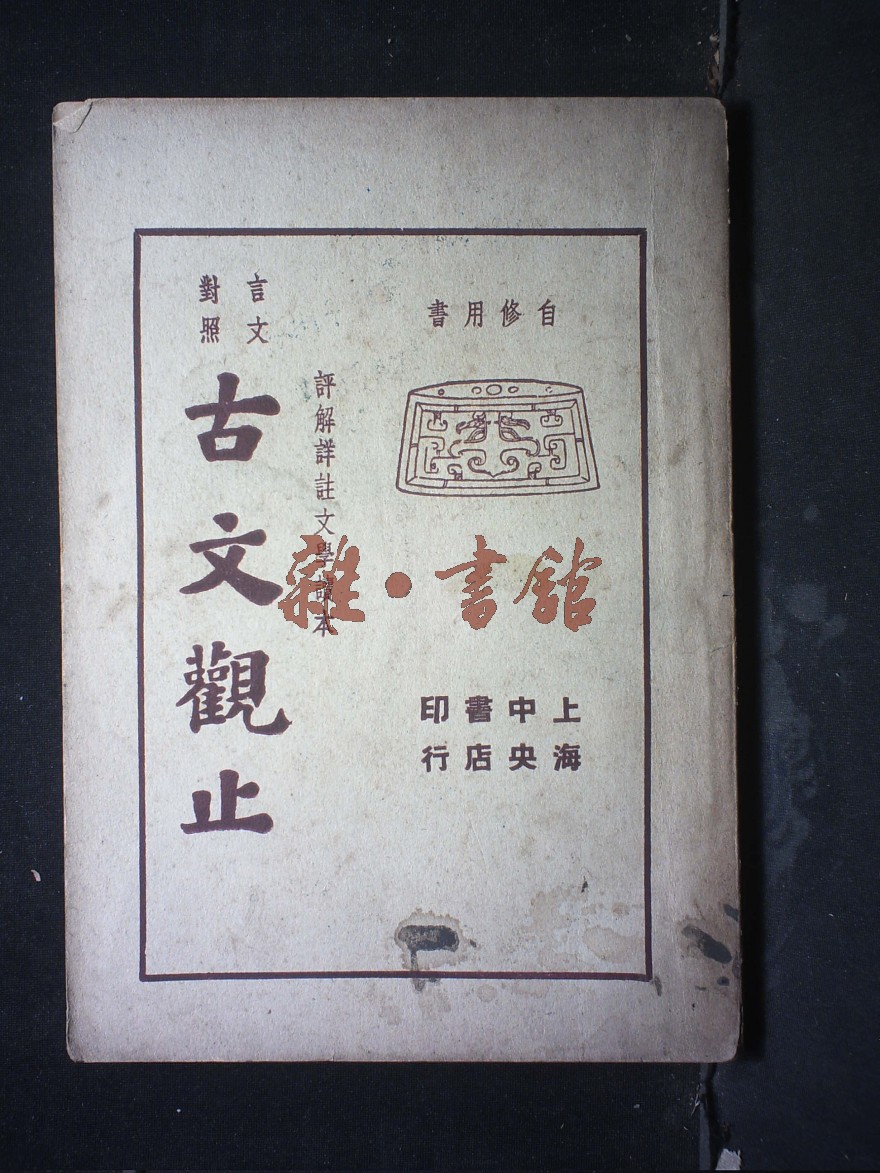 自修用書
上海中央書店印行
評解詳註文學讀本
言文對照
古文觀止
雜·書館